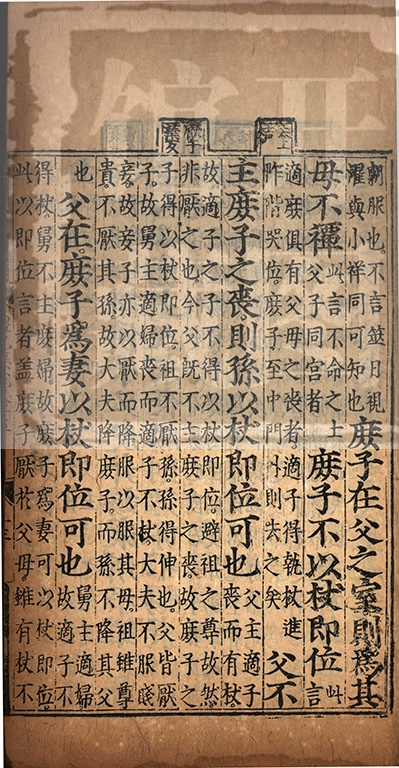 朝服也。不言筮日視
濯與小祥同可知也
庶子在父之室則爲其
母不禫
此言不命之士
父子同宮者
庶子不以杖即位
此
言
適庶俱有父母之喪者適子得執杖進
阼階哭位。庶子至中門外則去之矣
父不
主庶子之喪則孫以杖即位可也
父主適子
喪而有杖。
故適子之子不得以杖即位。避祖之尊故然
非厭之也。今父既不主庶子之喪。故庶子之
子得以杖即位。祖不厭孫。孫得伸也。父皆厭
子。故舅主適婦喪而適子不杖。大夫不服賤
妾。故妾子亦以厭而降服以服其母。祖雖尊
貴。不厭其孫。故大夫降庶子。而孫不降其父
也
父在。庶子爲妻以杖即位可也
舅主適婦
故適子不
得杖。舅不主庶婦。故庶子爲妻可以杖即位。
此以即位言者。蓋庶子厭於父母。雖有杖不